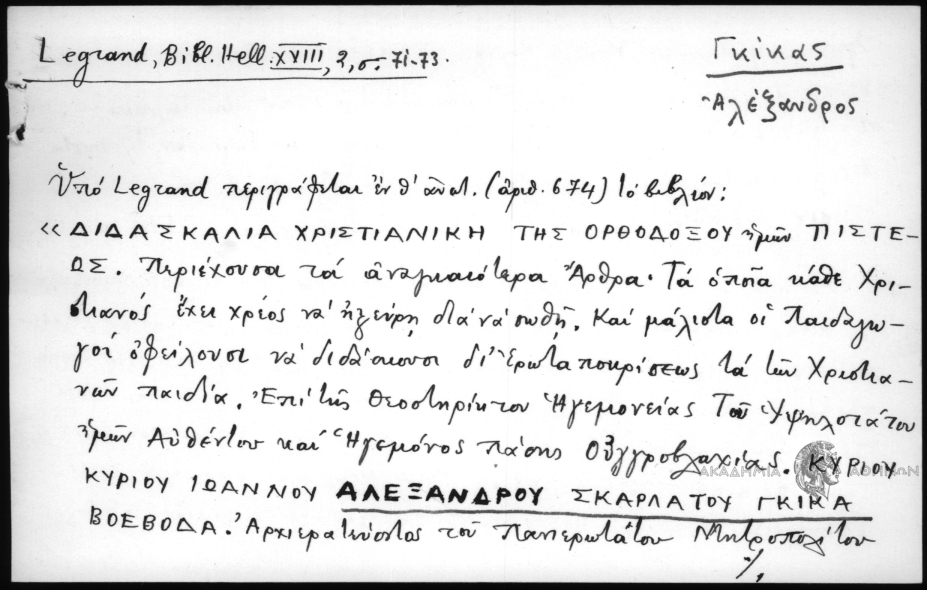 Legrand, Bibl. Hell. XVIII, 2, σ. 71-73.
Γκίκας
Ἀλέξανδρος
Ὑπό Legrand περιγράφεται ἐν θ' ἀνωτ. (ἀριθ. 674) τό βιβλίον:
« ΔΙΔΑΣΚΑΛΙΑ ΧΡΙΣΤΙΑΝΙΚΗ ΤΗΣ ΟΡΘΟΔΟΞΟΥ ἡμῶν ΠΙΣΤΕ-
ΩΣ. Περιέχουσα τά ἀναγκαιότερα Ἄρθρα. Τά ὁποῖα κάθε Χρι-
στιανός ἔχει χρέος νά ἠξεύρη διά νά σωθῇ. Καί μάλιστα οἱ Παιδαγω-
γοί ὀφείλουσι νά διδάσκωσι δι' Ἐρωταποκρίσεως τά τῶν Χριστια-
νῶν παιδία. Ἐπί τῆς Θεοστηρίκτου Ἡγεμονείας Τοῦ Ὑψηλοτάτου
ἡμῶν Αὐθέντου καί Ἡγεμόνος πάσης Οὑγγροβλαχίας. ΚΥΡΙΟΥ
ΑΚΑΔΗΜΙΑ ΑΘΗΝΩΝ
ΚΥΡΙΟΥ ΙΩΑΝΝΟΥ ΑΛΕΞΑΝΔΡΟΥ ΣΚΑΡΛΑΤΟΥ ΓΚΙΚΑ
ΒΟΕΒΟΔΑ. Ἀρχιερατεύοντος τοῦ Πανιερωτάτου Μητροπολίτου
./.